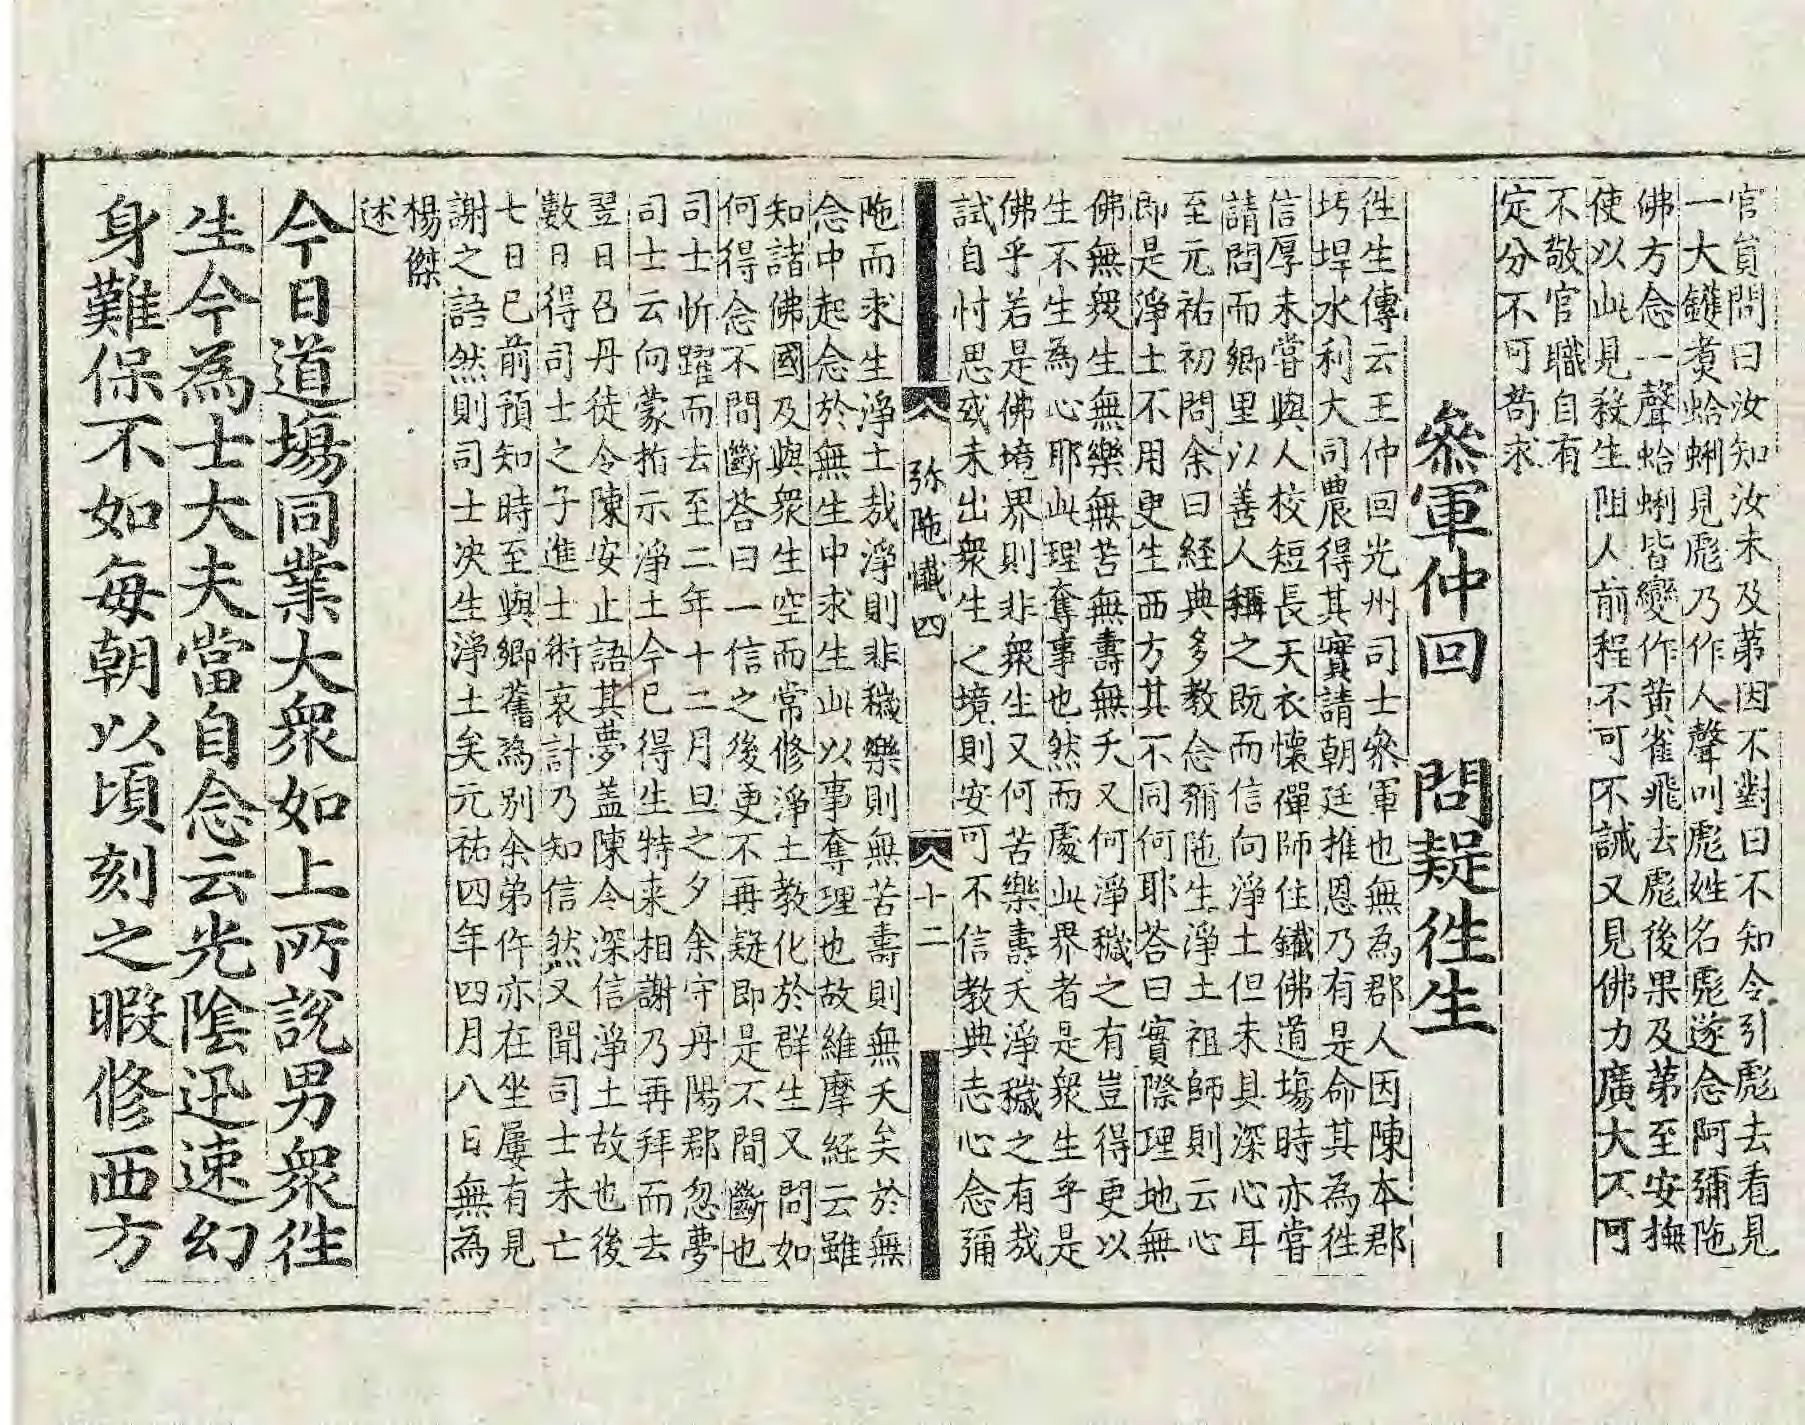 官員問曰汝知汝未及第因不對曰不知令引彪去看見
一大鑊煑蛤蜊見彪乃作人聲叫彪姓名彪遂念阿彌陁
佛方念一聲蛤蜊皆變作黄雀飛去彪後果及第至安撫
使以此見殺生阻人前程不可不誡又見佛力廣大不可
不敬官職自有
定分不可苟求
叅軍仲回　問疑徃生
徃生傳云王仲回光州司士叅軍也無為郡人因陳本郡
圬垾水利大司農得其實請朝廷推恩乃有是命其為徃
信厚未嘗與人校短長天衣懷禪師住鐵佛道塲時亦嘗
請問而鄉里以善人稱之既而信向淨土但未具深心耳
至元祐初問余曰経典多教念彌陁生淨土祖師則云心
即是淨土不用更生西方其不同何耶荅曰實際理地無
佛無衆生無樂無苦無壽無夭又何淨穢之有豈得更以
生不生為心耶此理奪事也然而處此界者是衆生乎是
佛乎若是佛境界則非衆生又何苦樂壽夭淨穢之有哉
試自忖思或未出衆生之境則安可不信教典志心念彌
弥陁懺四　十二
陁而求生淨土哉淨則非穢樂則無苦壽則無夭矣於無
念中起念於無生中求生此以事奪理也故維摩経云雖
知諸佛國及與衆生空而常修淨土教化於群生又問如
何得念不間斷荅曰一信之後更不再疑即是不間斷也
司士忻躍而去至二年十二月旦之夕余守丹陽郡忽夢
司士云向蒙指示淨土今已得生特来相謝乃再拜而去
翌日召丹徒令陳安止語其夢盖陳令深信淨土故也後
數日得司士之子進士術哀計乃知信然又聞司士未亡
七日已前預知時至與鄉舊為別余弟仵亦在坐屢有見
謝之語然則司士决生淨土矣元祐四年四月八日無為
楊傑
述
今日道塲同業大衆如上所說男衆徃
生今為士大夫當自念云光陰迅速幻
身難保不如每朝以頃刻之暇修西方